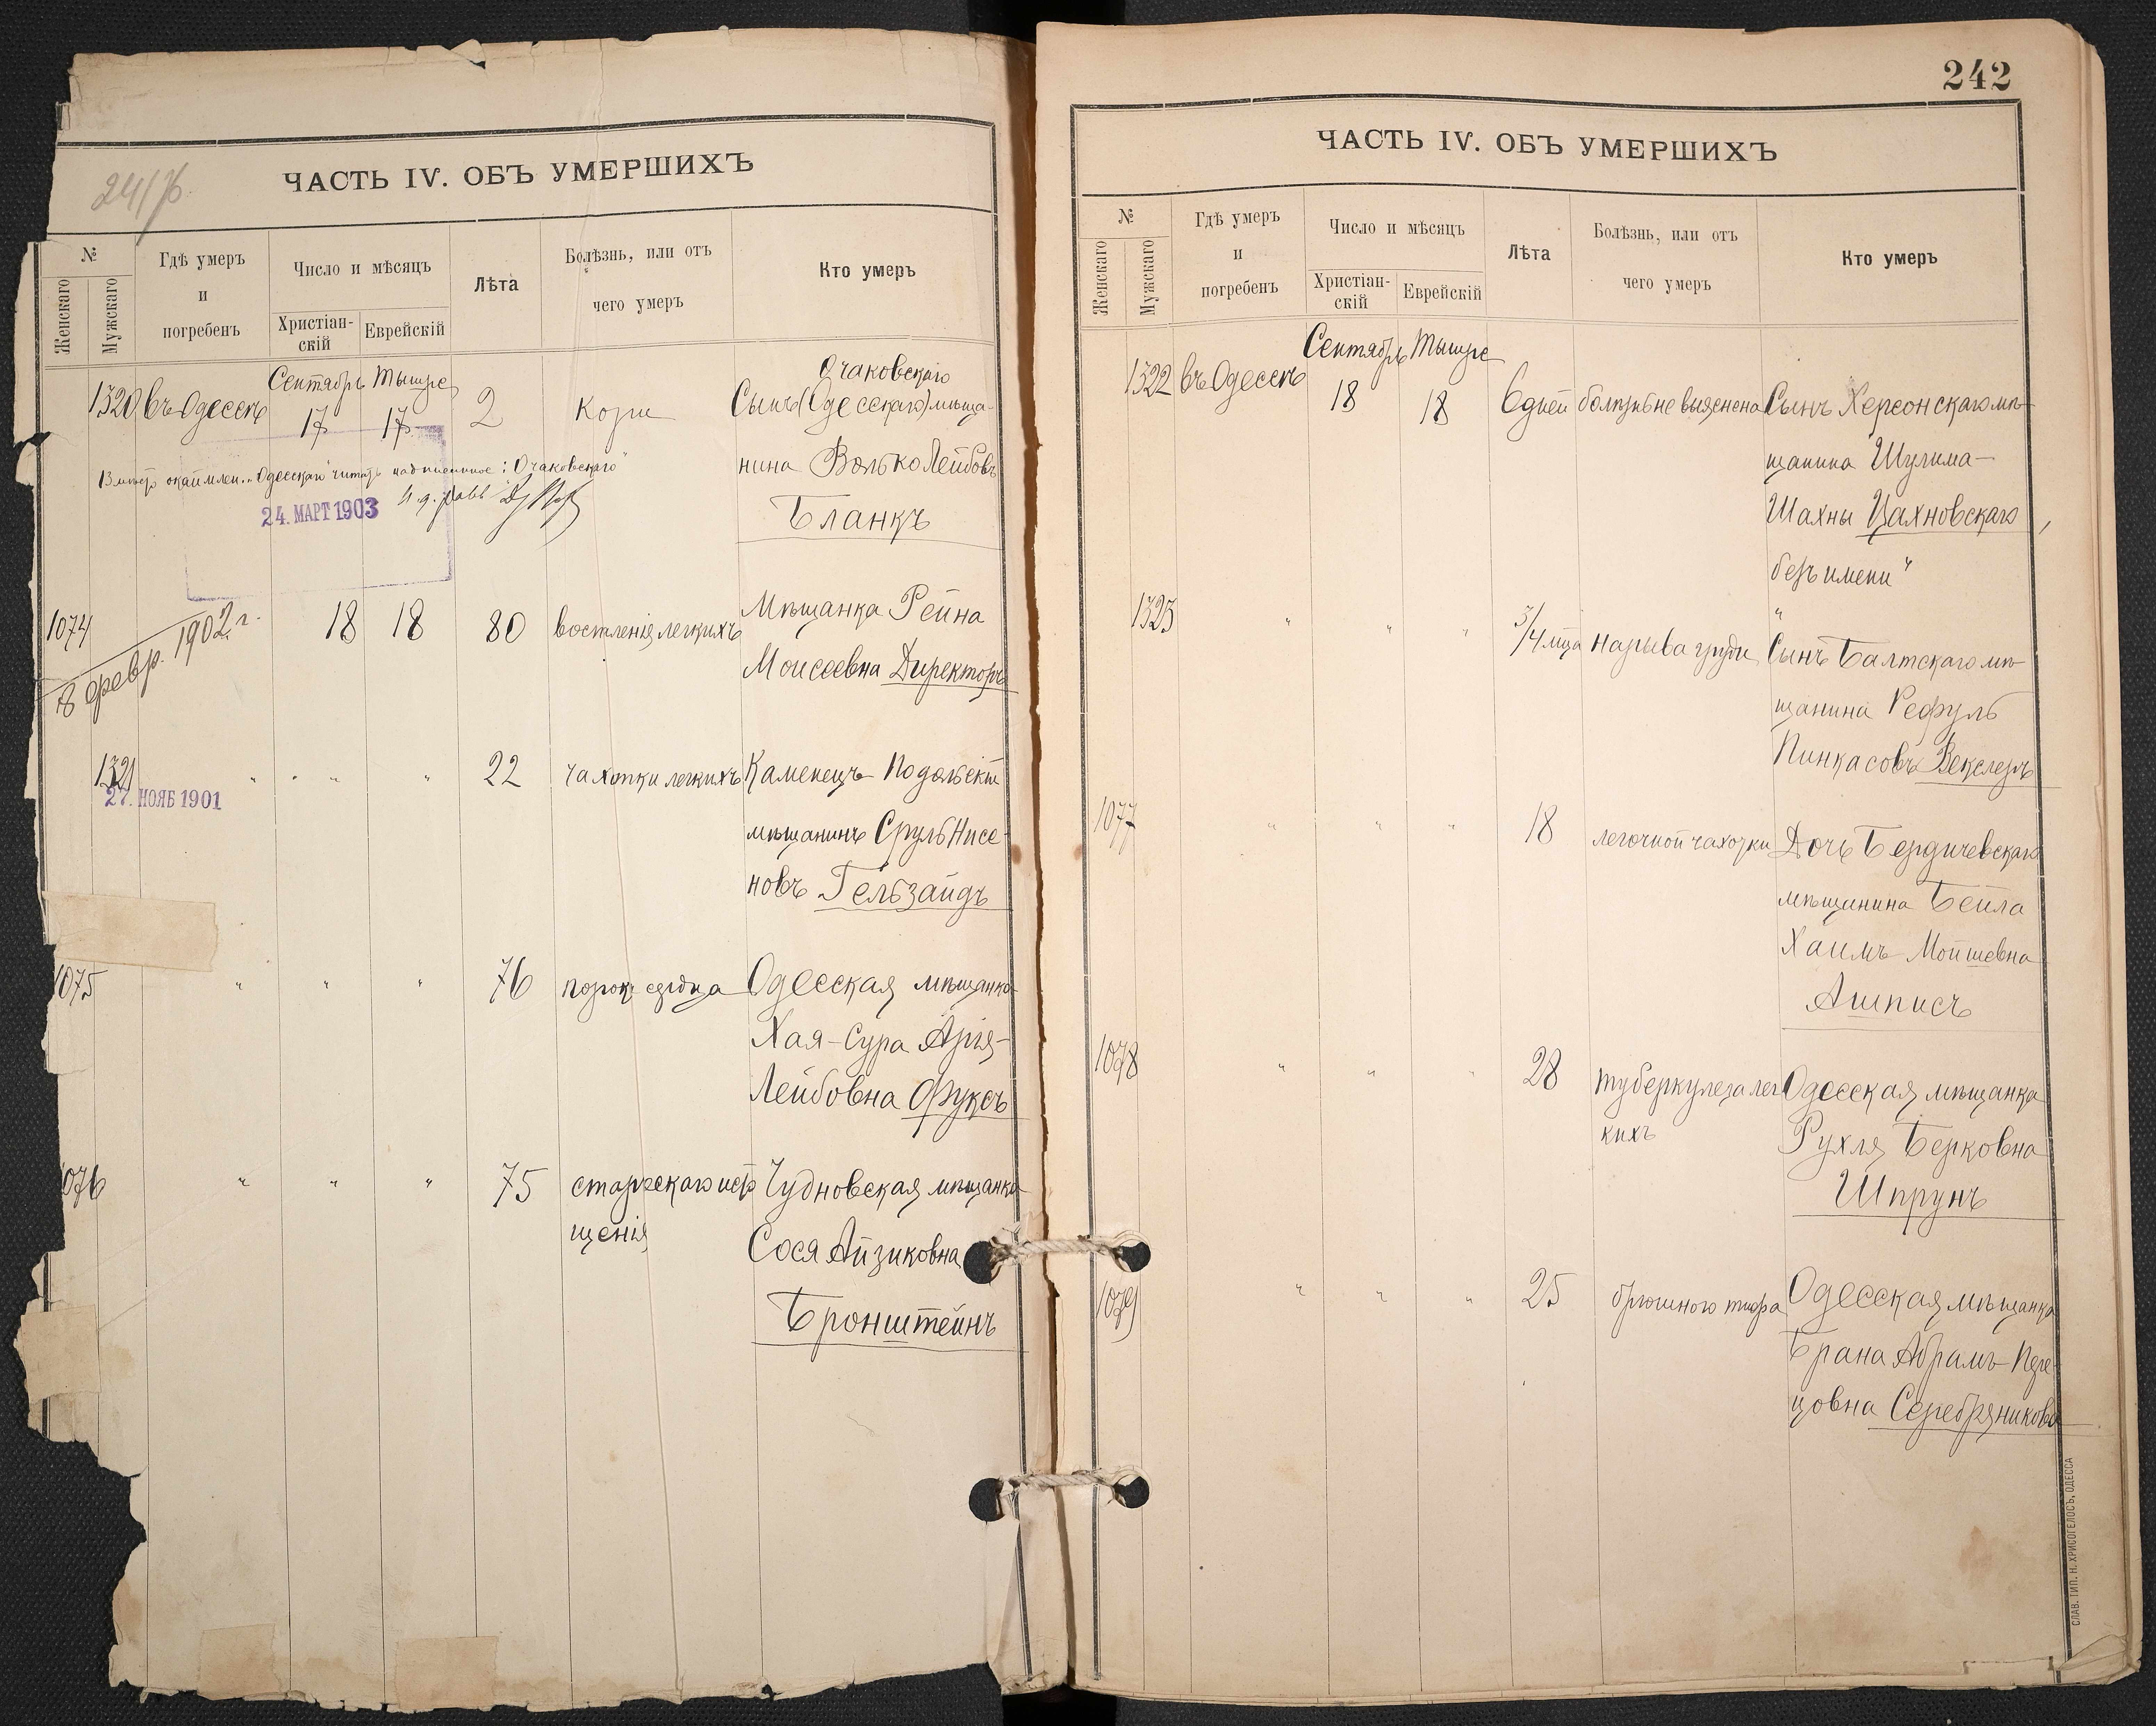 24176
ЧАСТЬ IV. ОБЪ УМЕРШИХЪ
№
Женскаго
Мужскаго
Гдѣ умеръ
и
погребенъ
Число и мѣсяцъ
Христіан-
скій
Еврейскій
Лѣта
Болѣзнь, или отъ
чего умеръ
Кто умеръ
1320 въ Одессѣ
Сентябрь Тышре
17 17 2 Кори
Очаковскаго
Сынъ (Одесскаго) мѣща-
нина Волько Лейбовъ
Бланкъ
Вмѣсто окаймлен. „Одесскаго" читать надписанное: „Очаковскаго"
24. МАРТ 1903
1074 18 18 80 воспаленія легкихъ
Мѣщанка Рейна
Моисеевна Директоръ
8 февр. 1902 г.
1321 " " " 22 чахотки легкихъ
27. НОЯБ 1901
Каменецъ-Подольскій
мѣщанинъ Сруль Нисе-
новъ Гельзайдъ
1075 " " " 76 порокъ сердца
Одесская мѣщанка
Хая-Сура Арія-
Лейбовна Фуксъ
1076 " " " 75 старческаго исто
щенія
Чудновская мѣщанка
Сося Айзиковна
Бронштейнъ
242
ЧАСТЬ IV. ОБЪ УМЕРШИХЪ
№
Женскаго
Мужскаго
Гдѣ умеръ
и
погребенъ
Число и мѣсяцъ
Христіан-
скій
Еврейскій
Лѣта
Болѣзнь, или отъ
чего умеръ
Кто умеръ
1322 въ Одессѣ
Сентябрь Тышре
18 18 6 дней болѣзнь не выяснена
Сынъ Херсонскаго мѣ-
щанина Шулима-
Шахны Цахновскаго,
„безъ имени"
1323 " " " 3/4 мца нарыва груди
Сынъ Балтскаго мѣ-
щанина Рефуль
Пинкасовъ Векслеръ
1077 " " " 18 легочной чахотки
Дочь Бердичевскаго
мѣщанина Бейла
Хаимъ-Мойшевна
Ашписъ
1078 " " " 28 туберкулеза лег
кихъ
Одесская мѣщанка
Рухля Берковна
Шпрунъ
1079 " " " 25 брюшного тифа
Одесская мѣщанка
Брана Абрамъ-Пере-
цовна Серебряникова
СЛАВ. ТИП. Н. ХРИСОГЕЛОСЪ, ОДЕССА